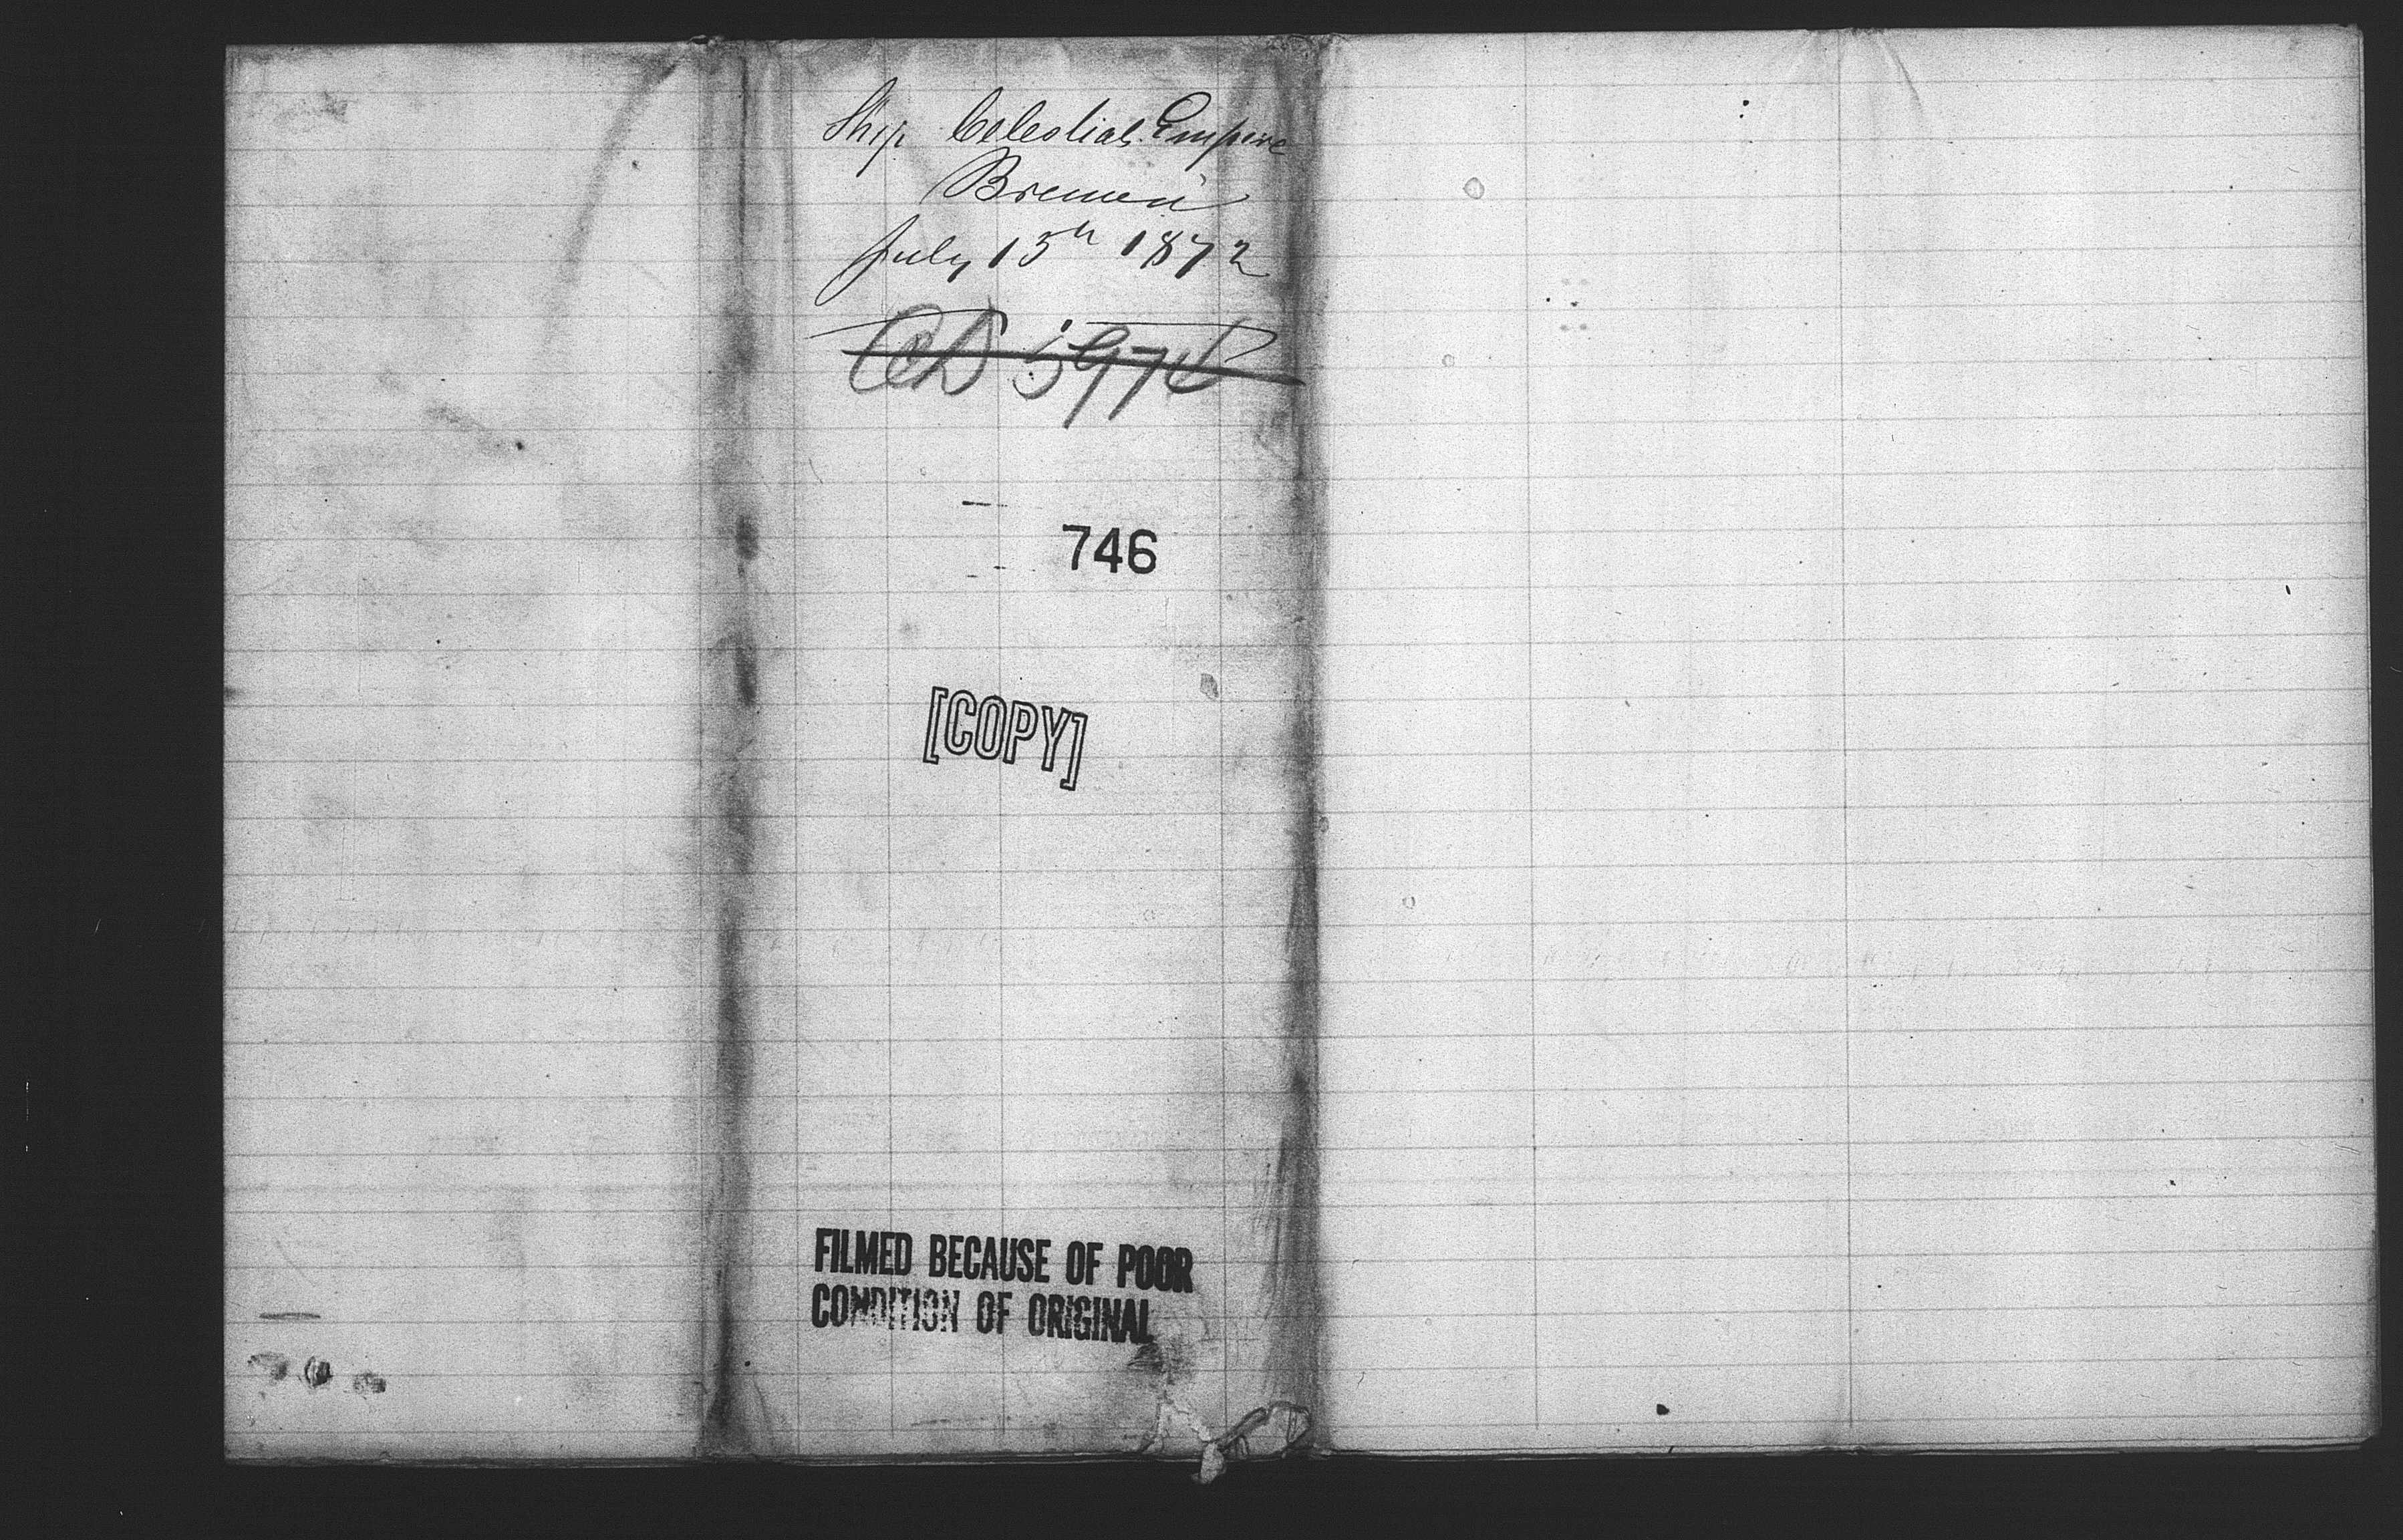 Ship Celestial Empire
Bremen
July 15th 1872
746
[COPY]
FILMED BECAUSE OF POOR
CONDITION OF ORIGINAL